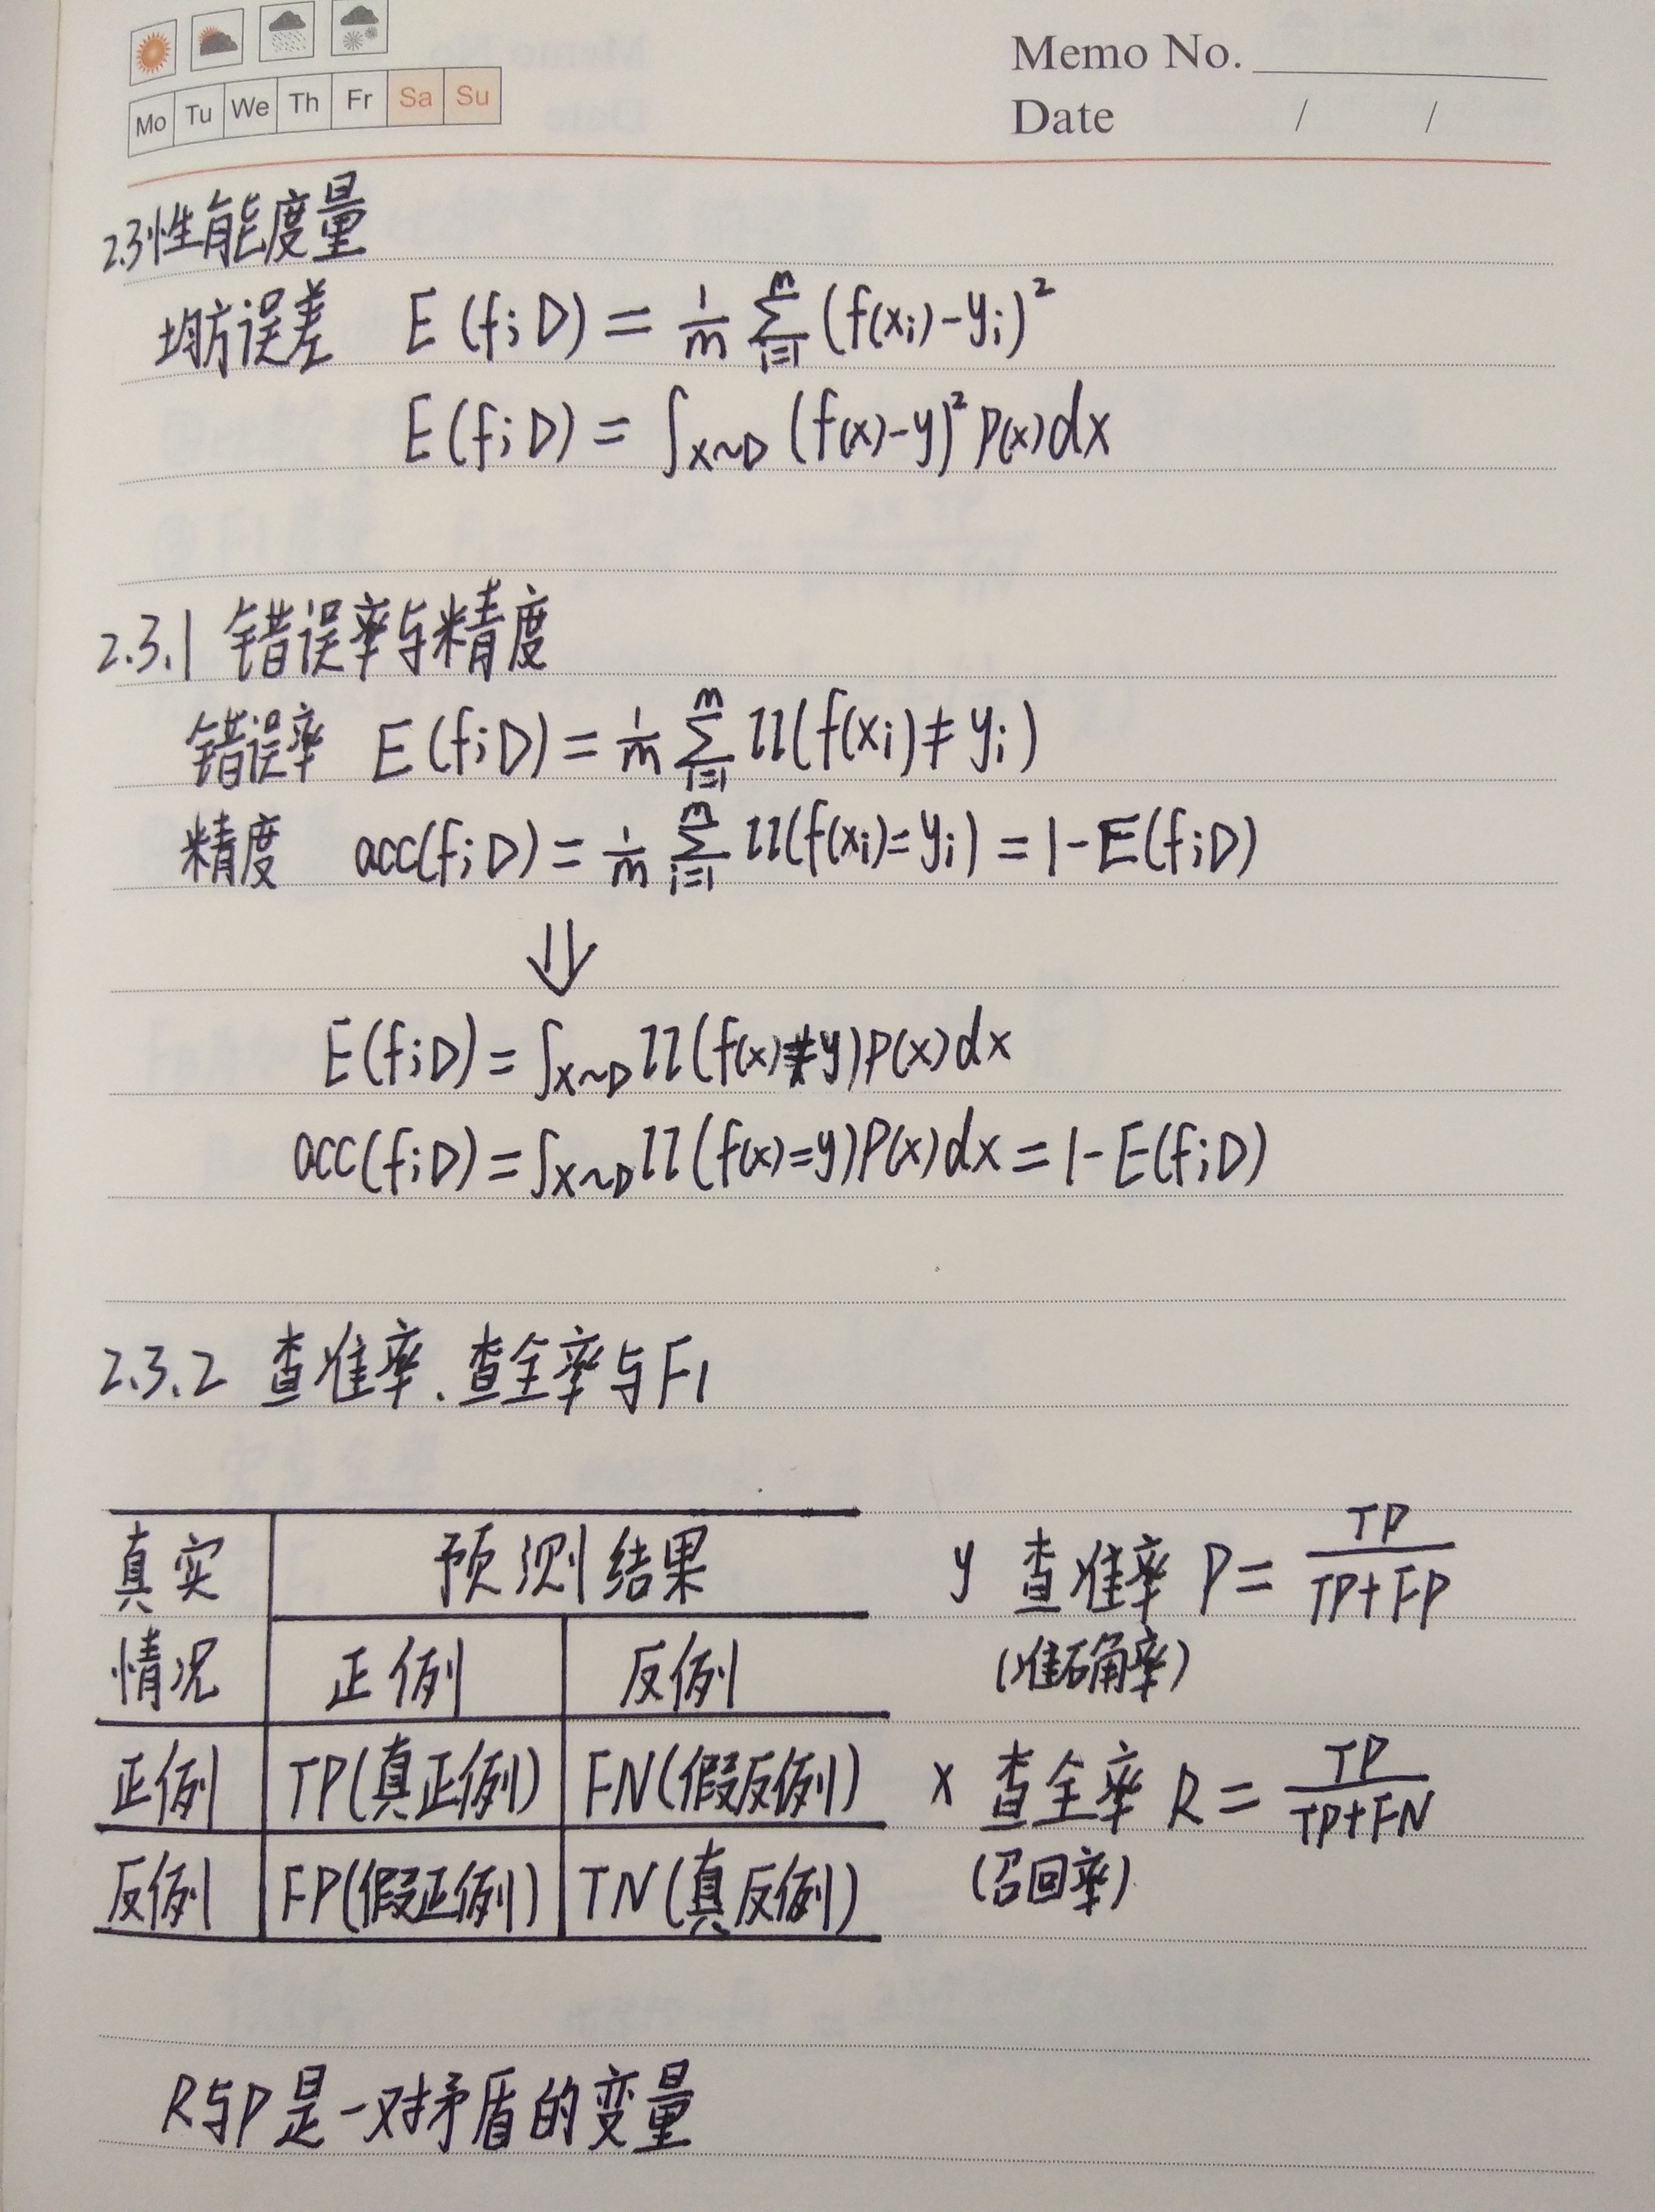 Memo No.
Mo Tu We Th Fr Sa Su
Date / /
2.3性能度量
均方误差 E(f;D) = 1/m ∑_{i=1}^{m} (f(x_i)-y_i)²
E(f;D) = ∫_{x~D} (f(x)-y)² p(x)dx
2.3.1 错误率与精度
错误率 E(f;D) = 1/m ∑_{i=1}^{m} II(f(x_i)≠y_i)
精度 acc(f;D) = 1/m ∑_{i=1}^{m} II(f(x_i)=y_i) = 1-E(f;D)
⇓
E(f;D) = ∫_{x~D} II(f(x)≠y)p(x)dx
acc(f;D) = ∫_{x~D} II(f(x)=y)P(x)dx = 1-E(f;D)
2.3.2 查准率、查全率与F1
真实 预测结果
情况 正例 反例
正例 TP(真正例) FN(假反例)
反例 FP(假正例) TN(真反例)
y 查准率 P = TP/(TP+FP)
(准确率)
x 查全率 R = TP/(TP+FN)
(召回率)
R与P是一对矛盾的变量